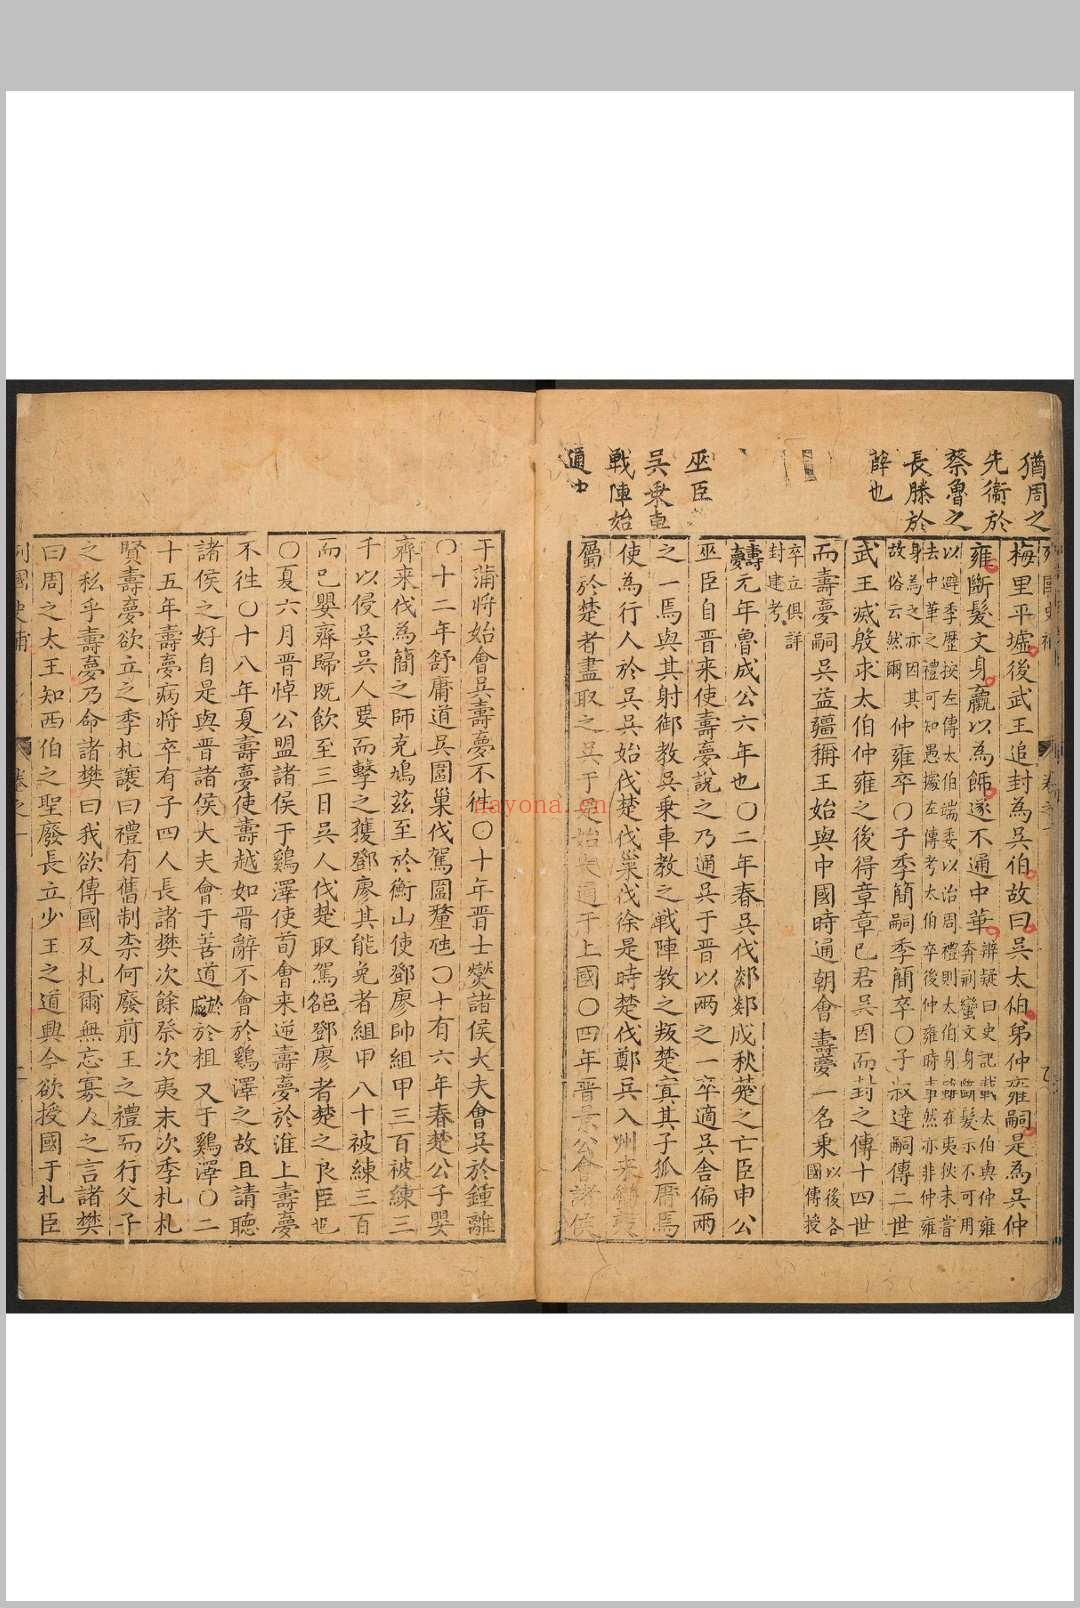 猶周之
先衞於
蔡魯之
長滕於
薛也
巫臣
吳乗車
戰陣始
通中
列國史補
卷之一
梅里平墟後武王追封為吳伯故曰吳太伯弟仲雍嗣是為吳仲
雍斷髮文身臝以為餙遂不通中華
辨疑曰史記載太伯與仲雍
奔荊蠻文身斷髮示不可用
以避季歷按左傳太伯端委以治周禮則太伯身雖在夷俠未嘗
去中華之禮可知愚據左傳考太伯卒後仲雍時事然亦非仲雍
身為之亦因其
故俗云然爾
仲雍卒〇子季簡嗣季簡卒〇子叔達嗣傳二世
武王滅殷求太伯仲雍之後得章章已君吳因而封之傳十四世
而壽夢嗣吳益疆稱王始與中國時通朝會壽夢一名乗
以後各
國傳授
卒立俱詳
封建考
壽夢元年魯成公六年也〇二年春吳伐郯郯成秋楚之亡臣申公
巫臣自晋来使壽夢說之乃通吳于晋以兩之一卒適吳舍偏兩
之一焉與其射御教吳乗車教之戰陣教之叛楚寘其子狐庸焉
使為行人於吳吳始伐楚伐巢伐徐是時楚伐鄭兵入州来蠻夷
屬於楚者盡取之吳于是始大通于上國〇四年晋景公會諸侯
于蒲將始會吳壽夢不徃〇十年晋士燮諸侯大夫會吳於鍾離
〇十二年舒庸道吳圍巢伐駕圍釐虺〇十有六年春楚公子嬰
齊来伐為簡之師克鳩茲至於衡山使鄧廖帥組甲三百被練三
千以侵吳吳人要而擊之獲鄧廖其能免者組甲八十被練三百
而已嬰齊歸既飲至三日吳人伐楚取駕邑名鄧廖者楚之良臣也
〇夏六月晋悼公盟諸侯于鷄澤使荀會来逆壽夢於淮上壽夢
不徃〇十八年夏壽夢使壽越如晋辭不會於鷄澤之故且請聽
諸侯之好自是與晋諸侯大夫會于善道於戚於柤又于鷄澤〇二
十五年壽夢病將卒有子四人長諸樊次餘祭次夷末次季札札
賢壽夢欲立之季札讓曰禮有舊制柰何廢前王之禮而行父子
之私乎壽夢乃命諸樊曰我欲傳國及札爾無忘寡人之言諸樊
曰周之太王知西伯之聖廢長立少王之道興今欲授國于札臣
列國史補
卷之一
nayona.cn